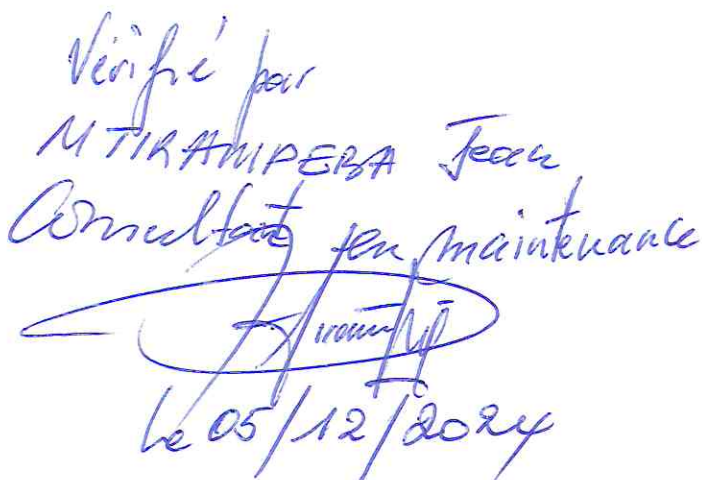 Vérifié par
NTIRAMPEBA Jean
Consultant en maintenance
Le 05/12/2024